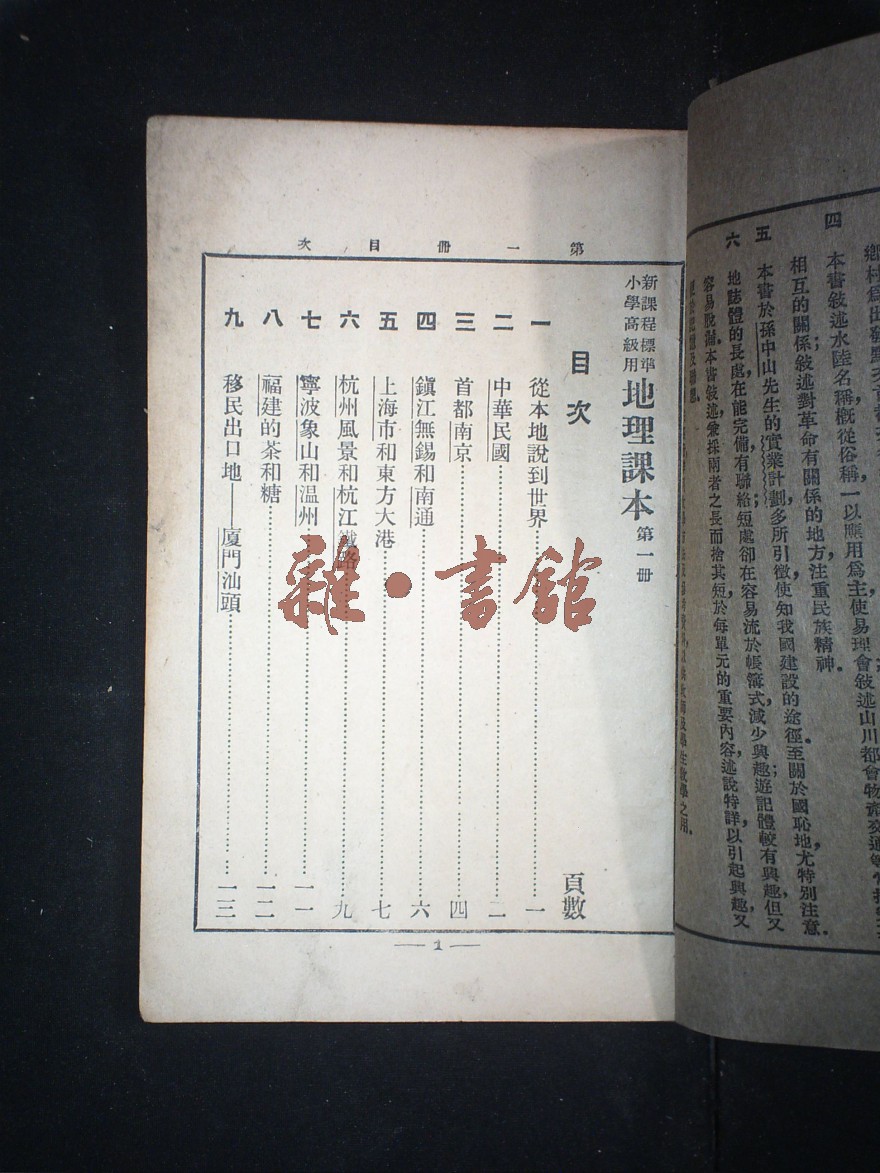 四
本書敍述水陸名稱概從俗稱一以應用爲主使易理會敍述山川都會物產交通等
相互的關係；敍述對革命有關係的地方，注重民族精神。
五
本書於孫中山先生的實業計劃多所引徵，使知我國建設的途徑；至關於國恥地，尤特別注意。
六
地誌體的長處，在能完備有聯絡；短處卻在容易流於帳簿式，減少興趣；遊記體較有興趣，但又
容易脫漏。本書敍述，兼採兩者之長而捨其短，於每單元的重要內容，述說特詳，以引起興趣，又
第一冊目次
新課程標準
小學高級用
地理課本 第一冊
目次
頁數
一 從本地說到世界 一
二 中華民國 二
三 首都南京 四
四 鎭江無錫和南通 六
五 上海市和東方大港 七
六 杭州風景和杭江鐵路 九
七 寧波象山和温州 一一
八 福建的茶和糖 一二
九 移民出口地——廈門汕頭 一三
— 1 —
雜·書館